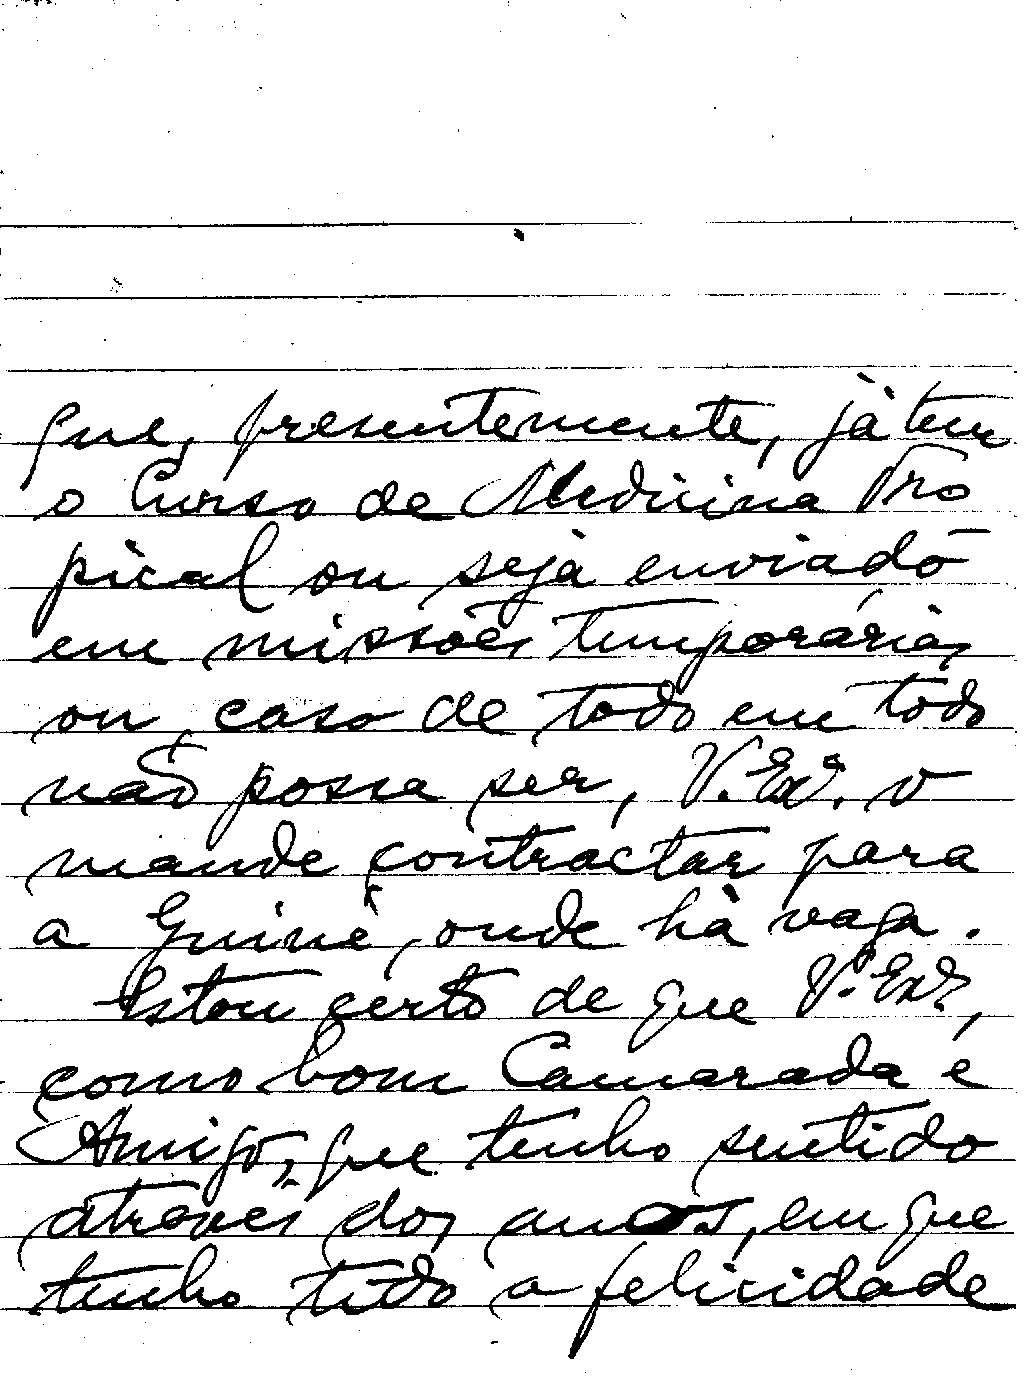 que, presentemente, já tem
o Curso de Medicina Tro
pical ou seja enviado
em missões temporárias
ou, caso de todo em todo
não possa ser, V. Exª. o
mande contractar para
a Guiné, onde há vaga.
Estou certo de que V. Exª,
como bom Camarada e
Amigo, que tenho sentido
através dos anos, em que
tenho tido a felicidade